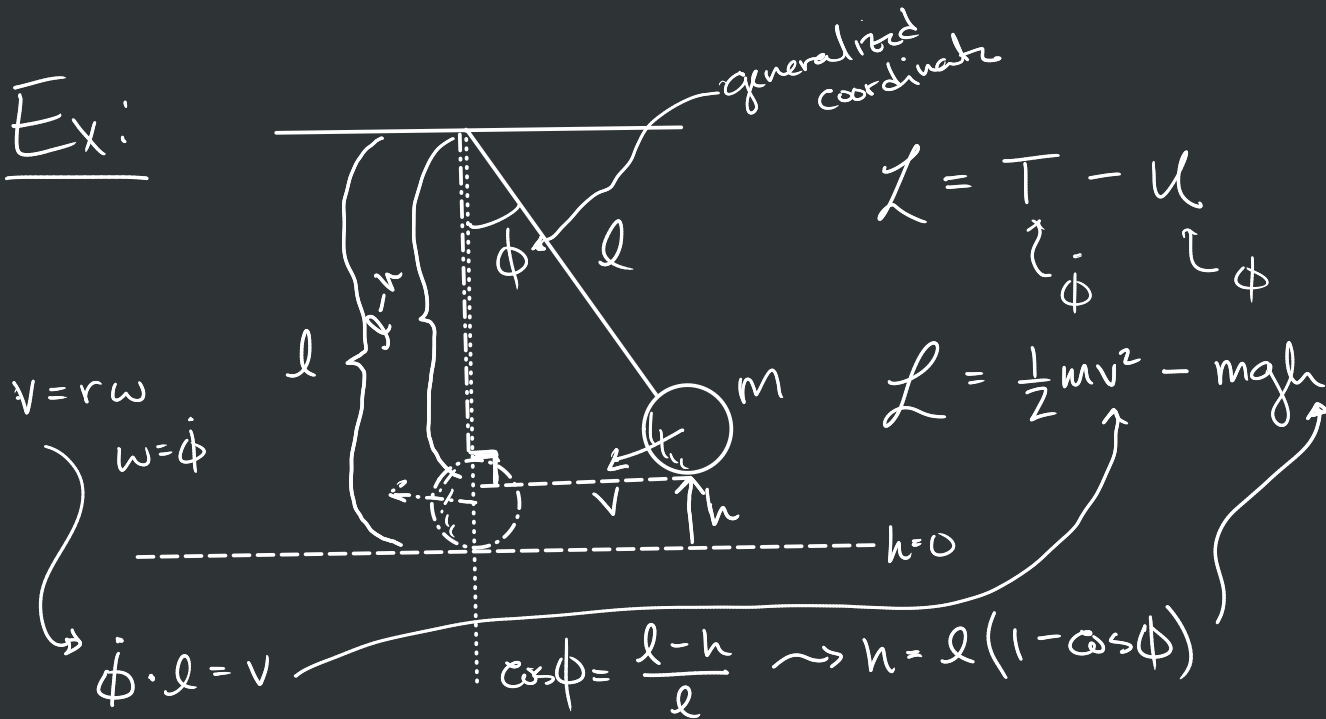 Ex:
generalized
coordinate
ℒ = T - U
ϕ̇
ϕ
ϕ
l
l-h
l
m
ℒ = 1/2 mv² - mgh
v = rω
ω = ϕ̇
v
h
h=0
ϕ̇ · l = v
cosϕ = (l-h)/l ⇝ h = l(1-cosϕ)